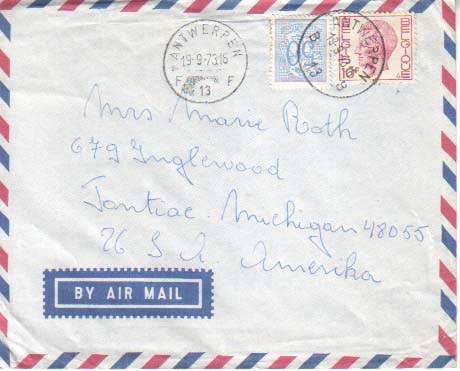 ANTWERPEN
19-9-73.16
F F
13
ANTWERPEN
B B
13
BELGIQUE
Mrs Marie Roth
679 Inglewood
Pontiac. Michigan 48055
U S A. Amerika
BY AIR MAIL